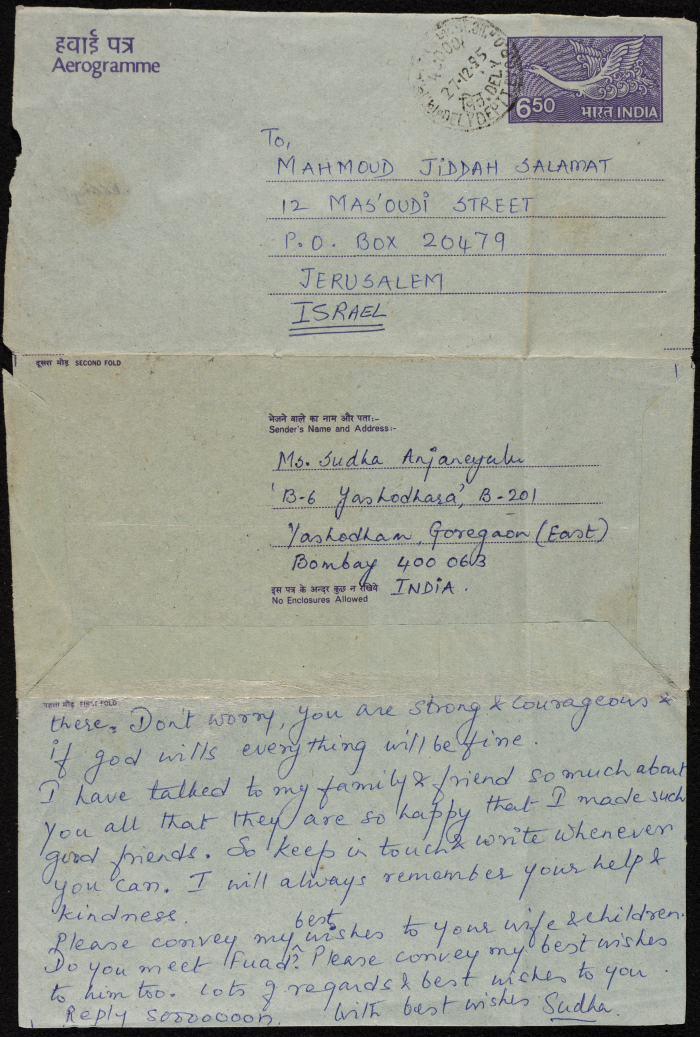 हवाई पत्र
Aerogramme
27·12·95
650
भारत INDIA
To,
MAHMOUD JIDDAH SALAMAT
12 MAS'OUDI STREET
P.O. BOX 20479
JERUSALEM
ISRAEL
दूसरा मोड़ SECOND FOLD
भेजने वाले का नाम और पता:-
Sender's Name and Address:-
Ms. Sudha Anjaneyulu
'B-6 Yashodhara', B-201
Yashodham, Goregaon (East)
Bombay 400 063
इस पत्र के अन्दर कुछ न रखिये INDIA.
No Enclosures Allowed
पहला मोड़ FIRST FOLD
there. Don't worry, you are strong & courageous &
if god wills everything will be fine.
I have talked to my family & friend so much about
you all that they are so happy that I made such
good friends. So keep in touch & write whenever
you can. I will always remember your help &
kindness.
Please convey my best wishes to your wife & children.
Do you meet Fuad? Please convey my best wishes
to him too. Lots of regards & best wishes to you.
Reply sooooooon. With best wishes Sudha.